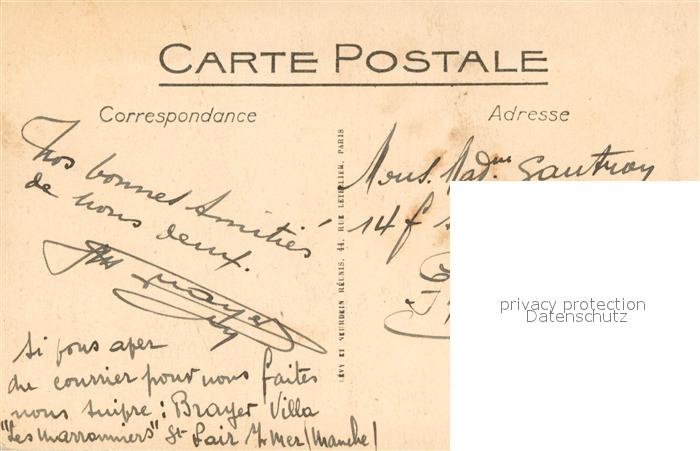 CARTE POSTALE
Correspondance
Adresse
Nos bonnes Amitiés
de nous deux.
Si vous avez
du courrier pour nous faites
nous suivre : Brayer Villa
"Les marronniers" St Pair s/ Mer (Manche)
LÉVY ET NEURDEIN RÉUNIS, 44, RUE LETELLIER, PARIS
Mons. Mad.me Gautron
14 f
privacy protection
Datenschutz